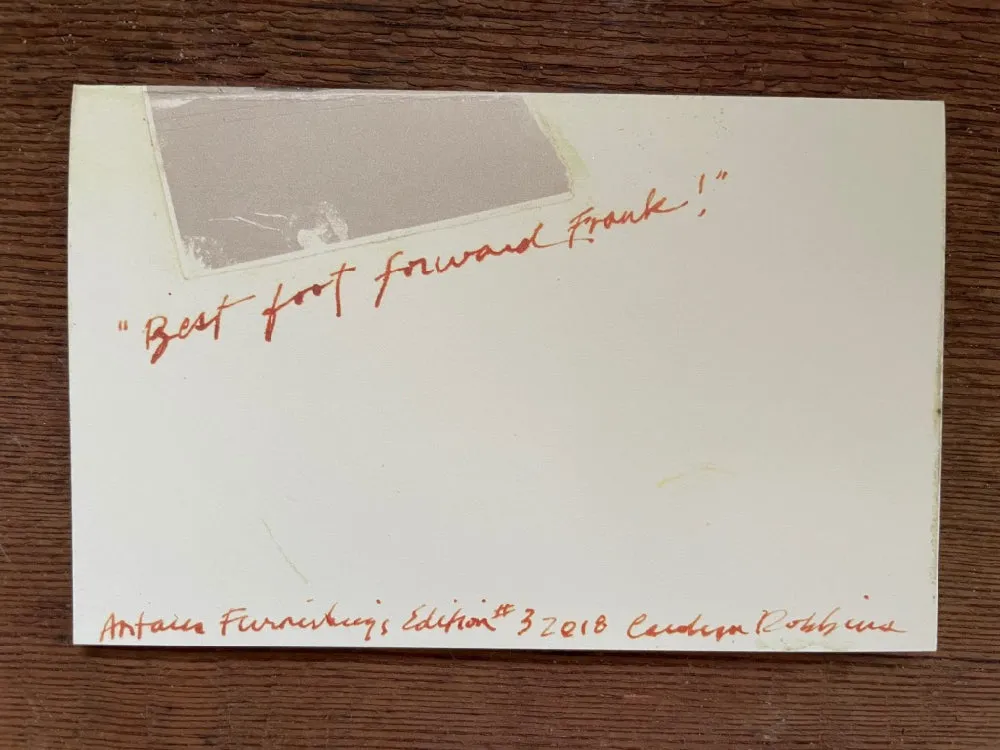 "Best foot forward Frank!"
Furnishings Edition #3 2018 Robbins